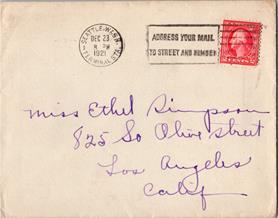 SEATTLE, WASH.
DEC 23
8 PM
1921
TERMINAL STA.
ADDRESS YOUR MAIL
TO STREET AND NUMBER
Miss Ethel Simpson
825 So Olive Street
Los Angeles
Calif